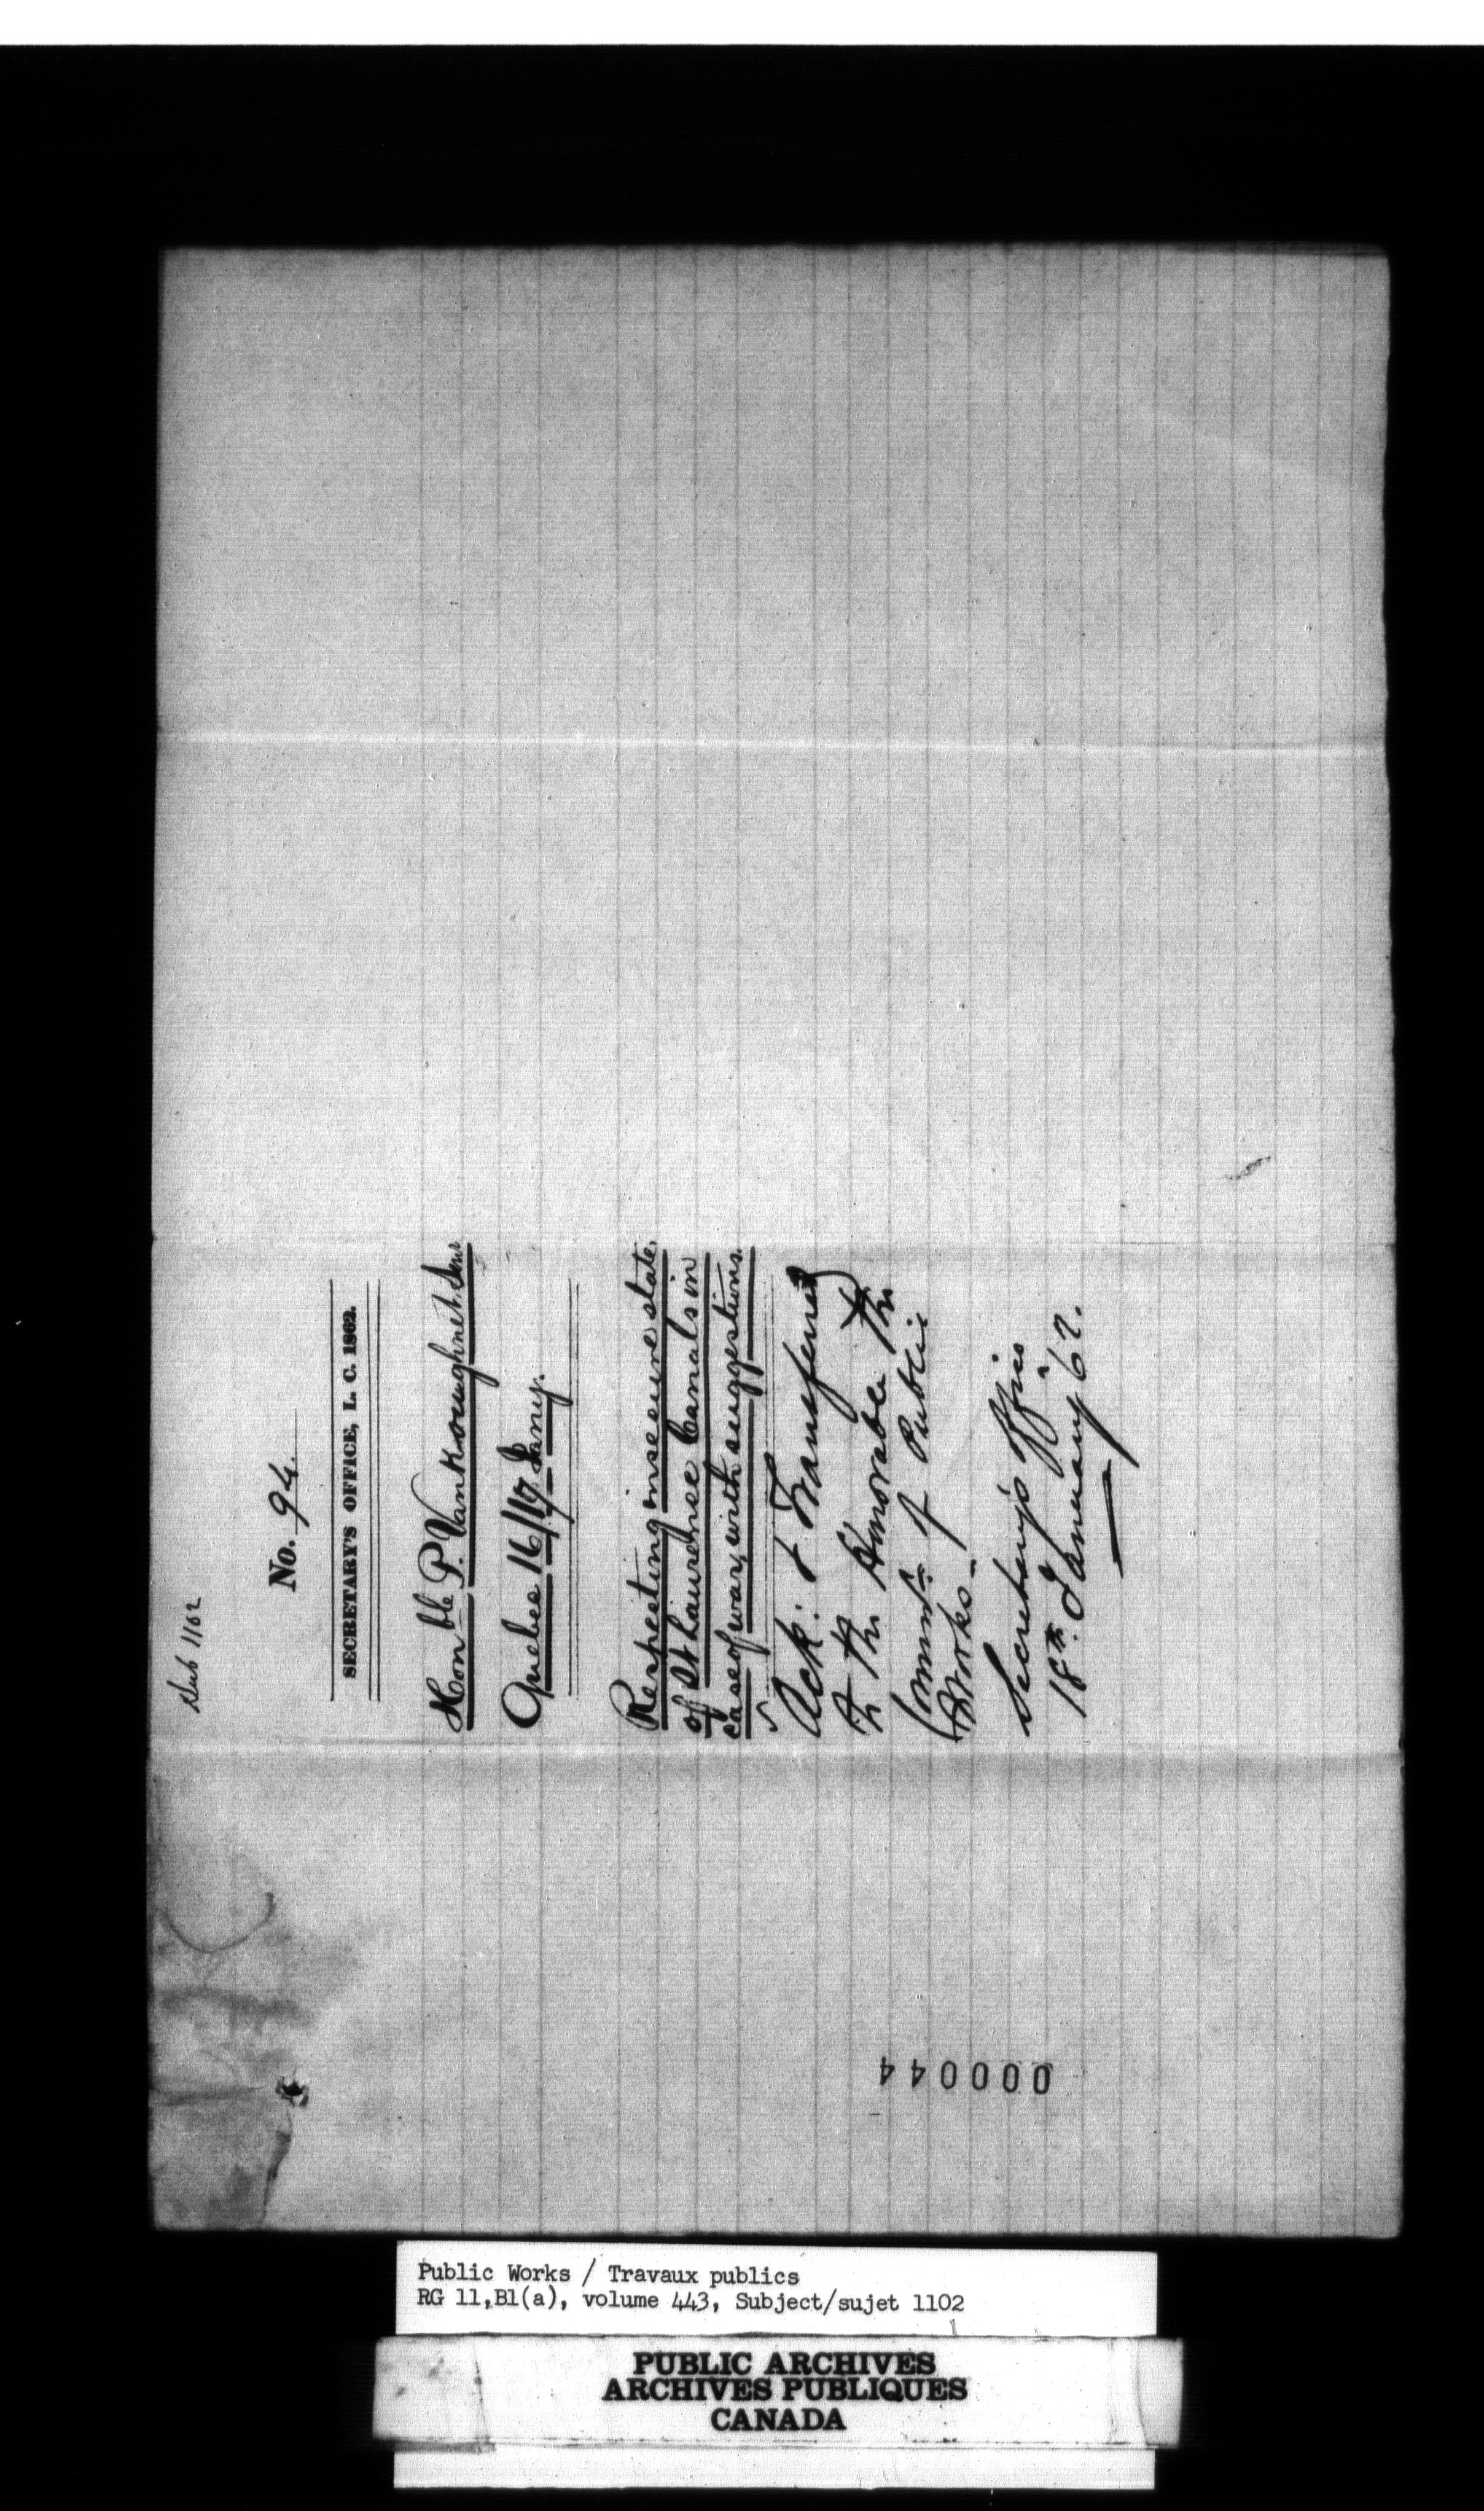 Sub 1102
No. 94.
SECRETARY'S OFFICE, L. C. 1862.
Honble P. Vankoughnet Senr
Quebec 16/17 Jany.
Respecting insecure state
of St Lawrence Canals in
case of war, with suggestions.
Ack: & Transferred
to the Honorable the
Commr of Public
Works—
Secretary's Office
18th January 62.
000044
Public Works / Travaux publics
RG 11,B1(a), volume 443, Subject/sujet 1102
PUBLIC ARCHIVES
ARCHIVES PUBLIQUES
CANADA